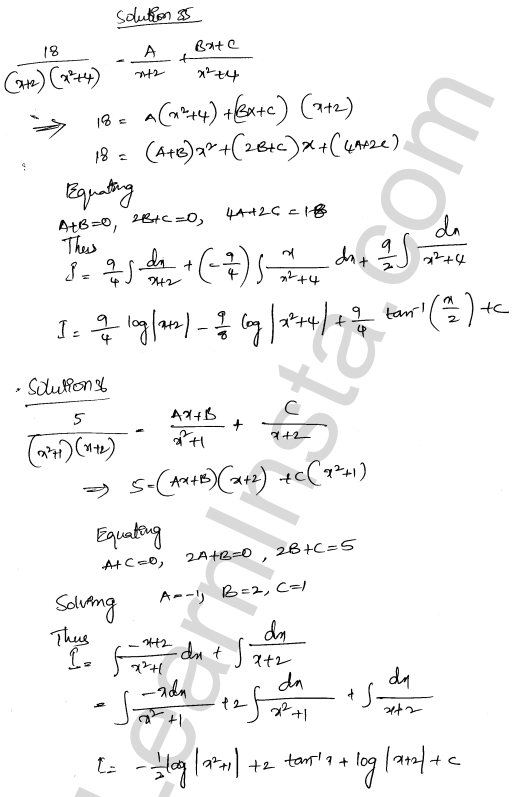 Solution 35
18/((x+2)(x²+4)) = A/(x+2) + (Bx+C)/(x²+4)
⇒ 18 = A(x²+4) + (Bx+C) (x+2)
18 = (A+B)x² + (2B+C)x + (4A+2C)
Equating
A+B=0, 2B+C=0, 4A+2C=18
Thus
I = 9/4 ∫ dx/(x+2) + (-9/4) ∫ x/(x²+4) dx + 9/2 ∫ dx/(x²+4)
I = 9/4 log|x+2| - 9/8 log|x²+4| + 9/4 tan⁻¹(x/2) + C
Solution 36
5/((x²+1)(x+2)) = (Ax+B)/(x²+1) + C/(x+2)
⇒ 5 = (Ax+B)(x+2) + C(x²+1)
Equating
A+C=0, 2A+B=0, 2B+C=5
Solving A=-1, B=2, C=1
Thus
I = ∫ (-x+2)/(x²+1) dx + ∫ dx/(x+2)
= ∫ -xdx/(x²+1) + 2∫ dx/(x²+1) + ∫ dx/(x+2)
I = -1/2 log|x²+1| + 2 tan⁻¹x + log|x+2| + C
LearnInsta.com